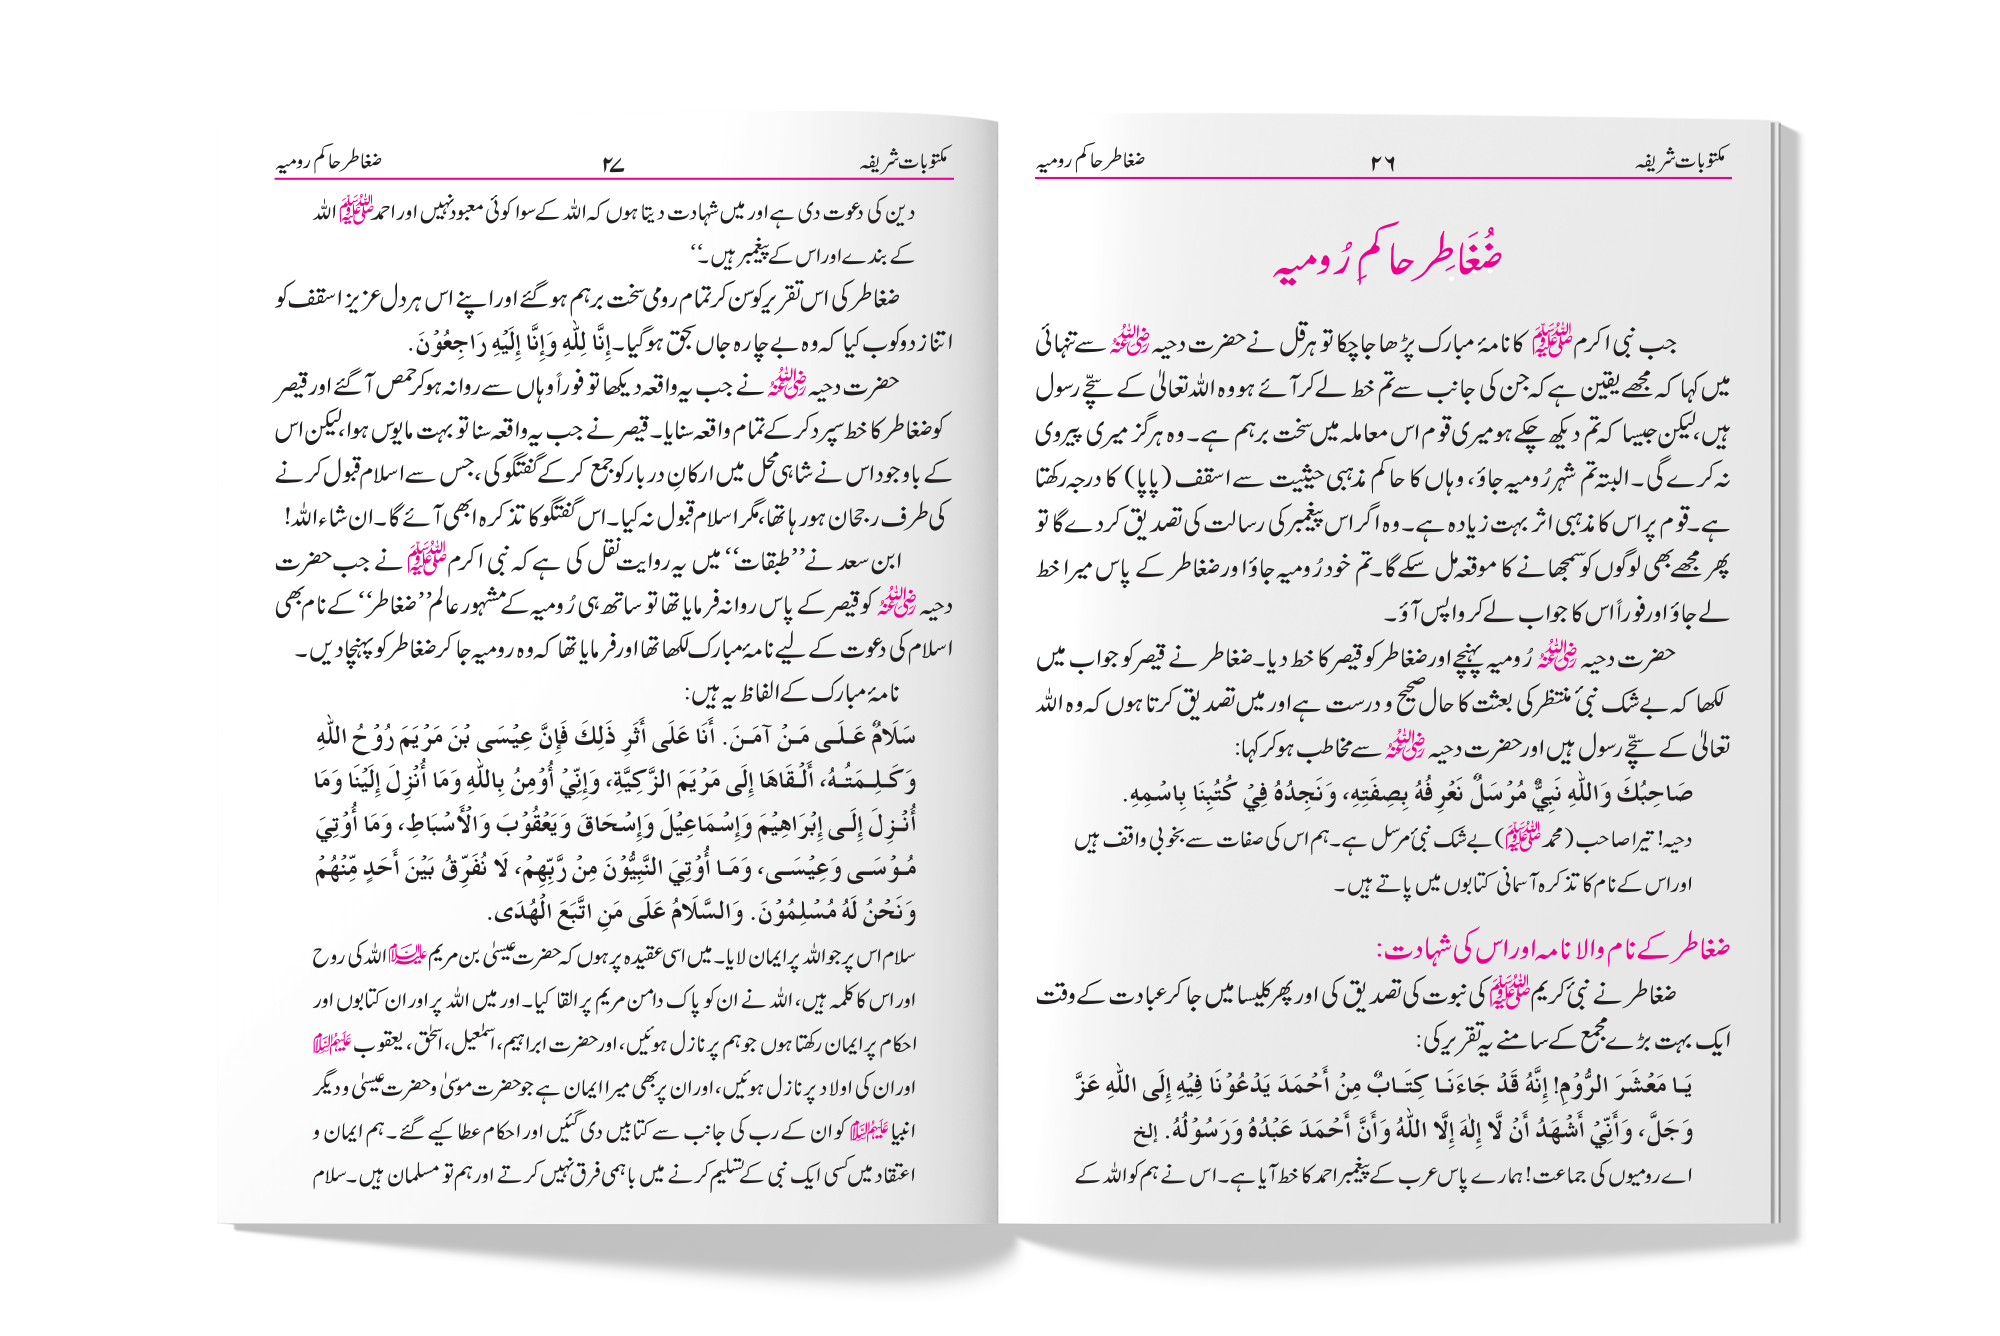 مکتوبات شریفہ ۲۶ ضغاطر حاکم رومیہ
ضُغَاطِر حاکمِ رُومیہ
جب نبی اکرم ﷺ کا نامۂ مبارک پڑھا جا چکا تو ہرقل نے حضرت دحیہ رضی اللہ عنہ سے تنہائی
میں کہا کہ مجھے یقین ہے کہ جن کی جانب سے تم خط لے کر آئے ہو وہ اللہ تعالیٰ کے سچّے رسول
ہیں، لیکن جیسا کہ تم دیکھ چکے ہو میری قوم اس معاملہ میں سخت برہم ہے۔ وہ ہرگز میری پیروی
نہ کرے گی۔ البتہ تم شہر رُومیہ جاؤ، وہاں کا حاکم مذہبی حیثیت سے اسقف (پاپا) کا درجہ رکھتا
ہے۔ قوم پر اس کا مذہبی اثر بہت زیادہ ہے۔ وہ اگر اس پیغمبر کی رسالت کی تصدیق کر دے گا تو
پھر مجھے بھی لوگوں کو سمجھانے کا موقعہ مل سکے گا۔ تم خود رُومیہ جاؤ اور ضغاطر کے پاس میرا خط
لے جاؤ اور فوراً اس کا جواب لے کر واپس آؤ۔
حضرت دحیہ رضی اللہ عنہ رُومیہ پہنچے اور ضغاطر کو قیصر کا خط دیا۔ ضغاطر نے قیصر کو جواب میں
لکھا کہ بے شک نبیٔ منتظر کی بعثت کا حال صحیح و درست ہے اور میں تصدیق کرتا ہوں کہ وہ اللہ
تعالیٰ کے سچّے رسول ہیں اور حضرت دحیہ رضی اللہ عنہ سے مخاطب ہو کر کہا:
صَاحِبُكَ وَاللّٰهِ نَبِيٌّ مُرْسَلٌ نَعْرِفُهُ بِصِفَتِهِ، وَنَجِدُهُ فِيْ كُتُبِنَا بِاسْمِهِ.
دحیہ! تیرا صاحب (محمد ﷺ) بے شک نبیٔ مرسل ہے۔ ہم اس کی صفات سے بخوبی واقف ہیں
اور اس کے نام کا تذکرہ آسمانی کتابوں میں پاتے ہیں۔
ضغاطر کے نام والا نامہ اور اس کی شہادت:
ضغاطر نے نبیٔ کریم ﷺ کی نبوت کی تصدیق کی اور پھر کلیسا میں جا کر عبادت کے وقت
ایک بہت بڑے مجمع کے سامنے یہ تقریر کی:
يَا مَعْشَرَ الرُّوْمِ! إِنَّهُ قَدْ جَاءَنَا كِتَابٌ مِنْ أَحْمَدَ يَدْعُوْنَا فِيْهِ إِلَى اللّٰهِ عَزَّ
وَجَلَّ، وَأَنِّيْ أَشْهَدُ أَنْ لَّا إِلٰهَ إِلَّا اللّٰهُ وَأَنَّ أَحْمَدَ عَبْدُهُ وَرَسُوْلُهُ. إلخ
اے رومیوں کی جماعت! ہمارے پاس عرب کے پیغمبر احمد کا خط آیا ہے۔ اس نے ہم کو اللہ کے
مکتوبات شریفہ ۲۷ ضغاطر حاکم رومیہ
دین کی دعوت دی ہے اور میں شہادت دیتا ہوں کہ اللہ کے سوا کوئی معبود نہیں اور احمد ﷺ اللہ
کے بندے اور اس کے پیغمبر ہیں۔‘‘
ضغاطر کی اس تقریر کو سن کر تمام رومی سخت برہم ہو گئے اور اپنے اس ہر دل عزیز اسقف کو
اتنا زدوکوب کیا کہ وہ بے چارہ جاں بحق ہو گیا۔ إِنَّا لِلّٰهِ وَإِنَّا إِلَيْهِ رَاجِعُوْنَ.
حضرت دحیہ رضی اللہ عنہ نے جب یہ واقعہ دیکھا تو فوراً وہاں سے روانہ ہو کر حمص آ گئے اور قیصر
کو ضغاطر کا خط سپرد کر کے تمام واقعہ سنایا۔ قیصر نے جب یہ واقعہ سنا تو بہت مایوس ہوا، لیکن اس
کے باوجود اس نے شاہی محل میں ارکانِ دربار کو جمع کر کے گفتگو کی، جس سے اسلام قبول کرنے
کی طرف رجحان ہو رہا تھا، مگر اسلام قبول نہ کیا۔ اس گفتگو کا تذکرہ ابھی آئے گا۔ ان شاء اللہ!
ابن سعد نے ’’طبقات‘‘ میں یہ روایت نقل کی ہے کہ نبی اکرم ﷺ نے جب حضرت
دحیہ رضی اللہ عنہ کو قیصر کے پاس روانہ فرمایا تھا تو ساتھ ہی رُومیہ کے مشہور عالم ’’ضغاطر‘‘ کے نام بھی
اسلام کی دعوت کے لیے نامۂ مبارک لکھا تھا اور فرمایا تھا کہ وہ رومیہ جا کر ضغاطر کو پہنچا دیں۔
نامۂ مبارک کے الفاظ یہ ہیں:
سَلَامٌ عَلَى مَنْ آمَنَ. أَنَا عَلَى أَثَرِ ذَلِكَ فَإِنَّ عِيْسَى بْنَ مَرْيَمَ رُوْحُ اللّٰهِ
وَكَلِمَتُهُ، أَلْقَاهَا إِلَى مَرْيَمَ الزَّكِيَّةِ، وَإِنِّيْ أُوْمِنُ بِاللّٰهِ وَمَا أُنْزِلَ إِلَيْنَا وَمَا
أُنْزِلَ إِلَى إِبْرَاهِيْمَ وَإِسْمَاعِيْلَ وَإِسْحَاقَ وَيَعْقُوْبَ وَالْأَسْبَاطِ، وَمَا أُوْتِيَ
مُوْسَى وَعِيْسَى، وَمَا أُوْتِيَ النَّبِيُّوْنَ مِنْ رَّبِّهِمْ، لَا نُفَرِّقُ بَيْنَ أَحَدٍ مِّنْهُمْ
وَنَحْنُ لَهُ مُسْلِمُوْنَ. وَالسَّلَامُ عَلَى مَنِ اتَّبَعَ الْهُدَى.
سلام اس پر جو اللہ پر ایمان لایا۔ میں اسی عقیدہ پر ہوں کہ حضرت عیسیٰ بن مریم علیہ السلام اللہ کی روح
اور اس کا کلمہ ہیں، اللہ نے ان کو پاک دامن مریم پر القا کیا۔ اور میں اللہ پر اور ان کتابوں اور
احکام پر ایمان رکھتا ہوں جو ہم پر نازل ہوئیں، اور حضرت ابراہیم، اسمٰعیل، اسحٰق، یعقوب علیہم السلام
اور ان کی اولاد پر نازل ہوئیں، اور ان پر بھی میرا ایمان ہے جو حضرت موسیٰ و حضرت عیسیٰ و دیگر
انبیا علیہم السلام کو ان کے رب کی جانب سے کتابیں دی گئیں اور احکام عطا کیے گئے۔ ہم ایمان و
اعتقاد میں کسی ایک نبی کے تسلیم کرنے میں باہمی فرق نہیں کرتے اور ہم تو مسلمان ہیں۔ سلام